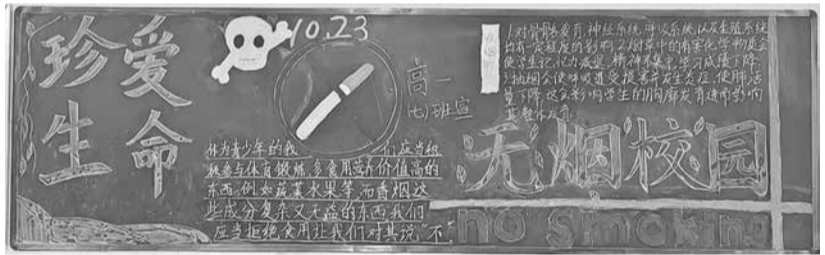 珍爱
生命
10.23
高一
(七)班宣
林为青少年的我们应当积
极参与体育锻炼,多食用营养价值高的
东西,例如蔬菜水果等,而香烟这
些成分复杂又无益的东西我们
应当拒绝食用让我们对其说"不".
1.对骨骼发育,神经系统,呼吸系统,以及生殖系统
均有一定程度的影响2.烟草中的有害化学物质会
使学生记忆力减退,精神不集中,学习成绩下降
3.抽烟会使呼吸道受损害并发生炎症,使肺活
量下降,这会影响学生的胸廓发育进而影响
其整体发育
无烟校园
no smoking